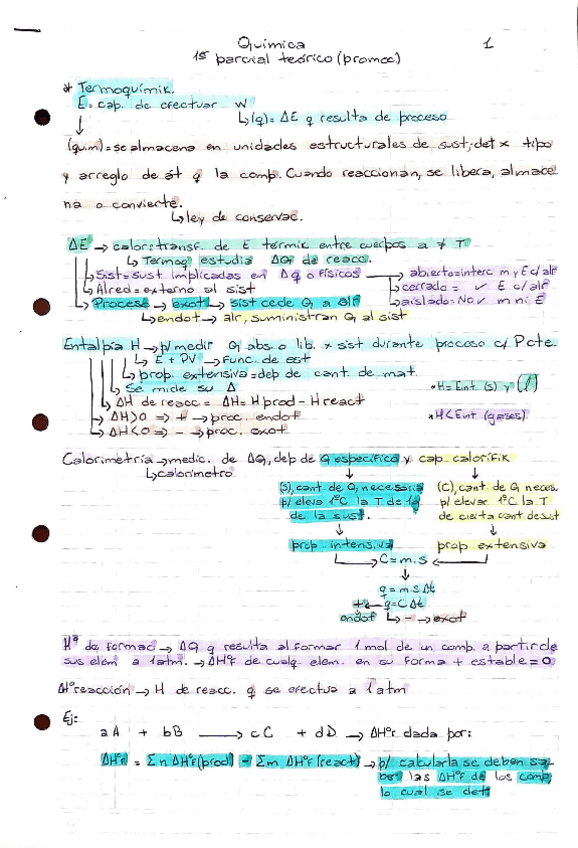 Química 1
1er parcial teórico (promoc)
* Termoquímik.
E = cap. de efectuar W
↳(q) = ΔE q resulta de proceso
(quim) = se almacena en unidades estructurales de sust, det x tipo
y arreglo de át q la comp. Cuando reaccionan, se libera, almace
na o convierte.
↳ ley de conservac.
ΔE → calor: transf. de E térmik entre cuerpos a ≠ T
↳ Termoq estudia ΔQ de reacc.
↳ Sist = sust implicadas en Δ q o físicos → abierto = interc m y E c/ alr
↳ Alred = externo al sist cerrado = ✓ E c/ alr
↳ Proceso → exot → sist cede Q a alr aislado = No ✓ m ni E
↳ endot → alr, suministran Q al sist
Entalpía H → p/ medir Q abs. o lib. x sist durante proceso c/ P cte.
↳ E + PV → func. de est
↳ prop. extensiva = dep de cant. de mat.
↳ Se mide su Δ • H = Ent (s) y (l)
↳ ΔH de reacc = ΔH = Hprod - Hreact
→ ΔH>0 ⇒ + → proc. endot * H< Ent (gases)
→ ΔH<0 ⇒ - → proc. exot
Calorimetría → medic. de ΔQ, dep de Q específico y cap. calorífik
↳ calorímetro
(S), cant de Q necesaria (C), cant de Q neces.
p/ elevar 1°C la T de 1g p/ elevar 1°C la T
de la sust. de cierta cant de sust
prop intensiva prop extensiva
→ C = m.S ←
q = m S Δt
+ ← q = C Δt
endot ↳ - → exot
H° de formac → ΔQ q resulta al formar 1 mol de un comp. a partir de
sus elem a 1 atm. → ΔH°f de cualq. elem. en su forma + estable = 0
ΔH° reacción → H de reacc. q se efectua a 1 atm
Ej:
aA + bB → cC + dD → ΔH°r dada por:
ΔH°r = Σn ΔH°f (prod) - Σm ΔH°f (react) → p/ calcularla se deben sa-
ber las ΔH°f de los comp
lo cual se det: